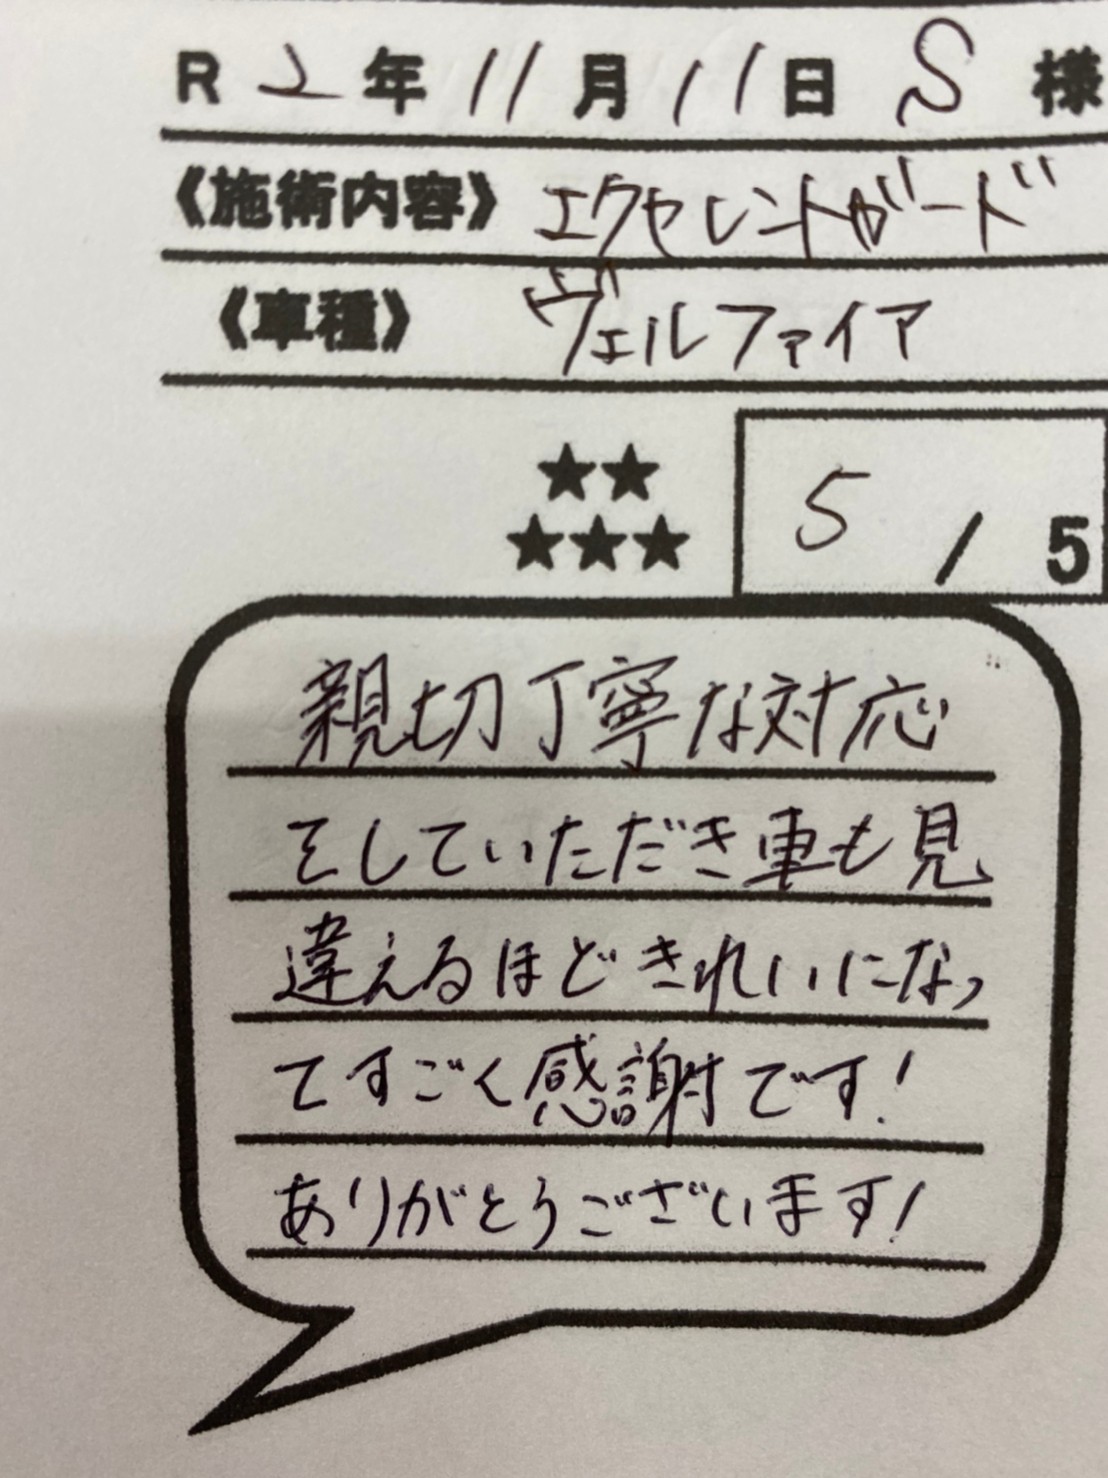 R 2年 11月 11日 S 様
《施術内容》 エクセレントガード
《車種》 ヴェルファイア
★★
★★★
5 / 5
親切丁寧な対応
をしていただき車も見
違えるほどきれいになっ
てすごく感謝です!
ありがとうございます!